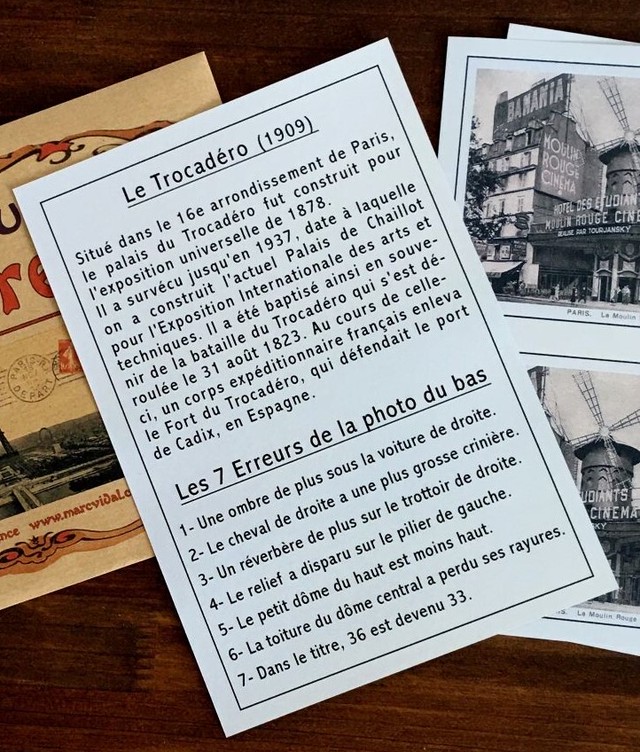 Le Trocadéro (1909)
Situé dans le 16e arrondissement de Paris,
le palais du Trocadéro fut construit pour
l'exposition universelle de 1878.
Il a survécu jusqu'en 1937, date à laquelle
on a construit l'actuel Palais de Chaillot
pour l'Exposition Internationale des arts et
techniques. Il a été baptisé ainsi en souve-
nir de la bataille du Trocadéro qui s'est dé-
roulée le 31 août 1823. Au cours de celle-
ci, un corps expéditionnaire français enleva
le Fort du Trocadéro, qui défendait le port
de Cadix, en Espagne.
Les 7 Erreurs de la photo du bas
1- Une ombre de plus sous la voiture de droite.
2- Le cheval de droite a une plus grosse crinière.
3- Un réverbère de plus sur le trottoir de droite.
4- Le relief a disparu sur le pilier de gauche.
5- Le petit dôme du haut est moins haut.
6- La toiture du dôme central a perdu ses rayures.
7- Dans le titre, 36 est devenu 33.
PARIS
DEPART
www.marcvidal.c
BANANIA
MOULIN
ROUGE
CINÉMA
HOTEL DES ETUDIANT
MOULIN ROUGE CINEMA
REALISE PAR TOURJANSKY
PARIS. Le Moulin
UDIANTS
CINEMA
SKY
Le Moulin Rouge